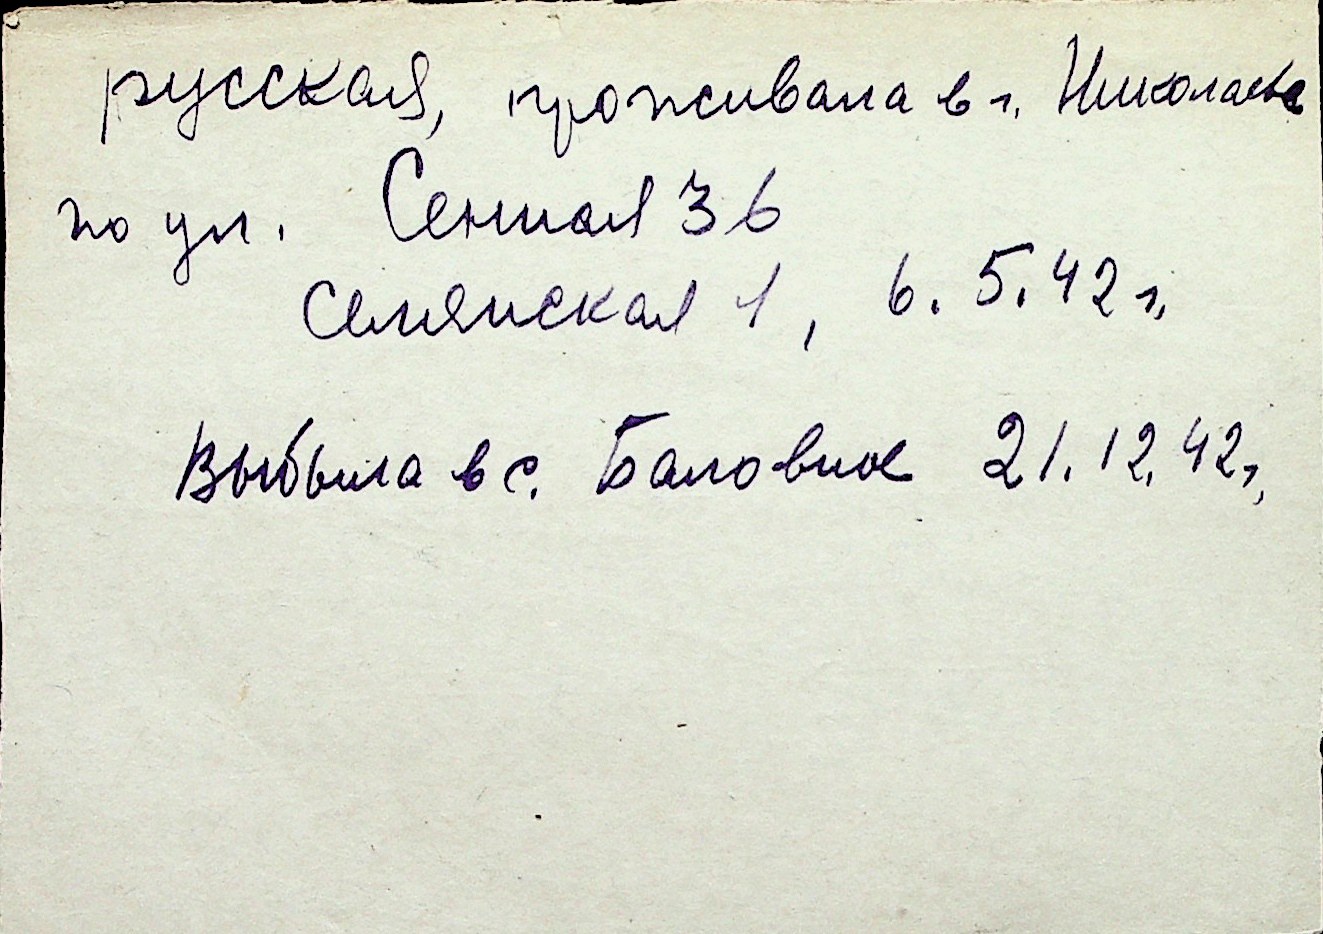 русская, проживала в г. Николаеве
по ул. Сенная 36
Семянская 1, 6.5.42 г.
Выбыла в с. Баловное 21.12.42 г.